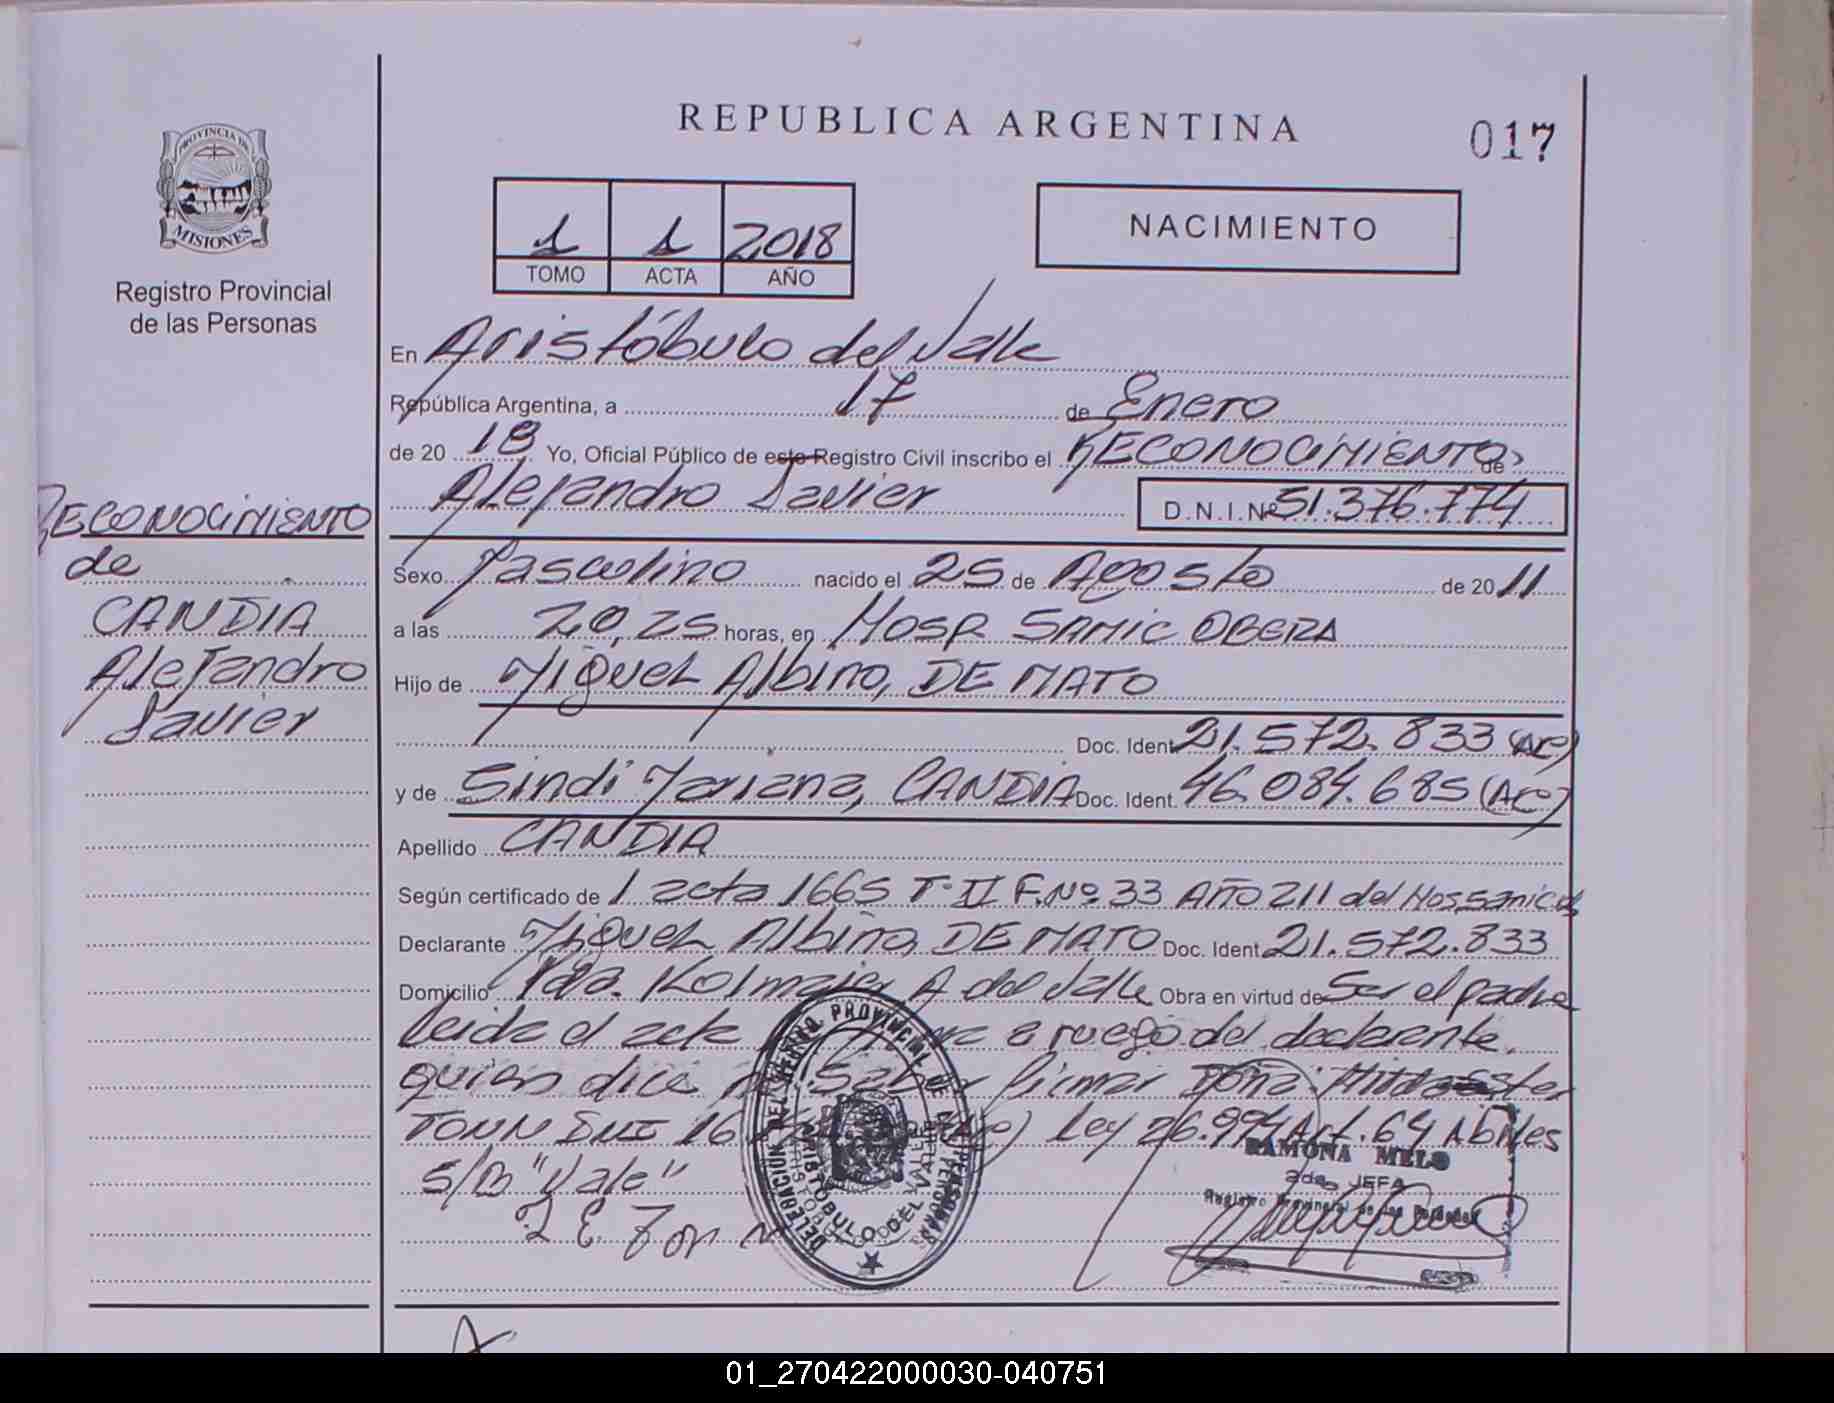 REPUBLICA ARGENTINA
017
PROVINCIA DE
MISIONES
Registro Provincial
de las Personas
1 1 2018
TOMO ACTA AÑO
NACIMIENTO
En Aristóbulo del Valle
República Argentina, a 17 de Enero
de 20 18 Yo, Oficial Público de este Registro Civil inscribo el RECONOCIMIENTO de
Alejandro Javier D.N.I.Nº 51.376.774
RECONOCIMIENTO
de
CANDIA
Alejandro
Javier
Sexo Masculino nacido el 25 de Agosto de 20 11
a las 20,25 horas, en HOSP. SAMIC OBERA
Hijo de Miguel Albino, DE MATO
Doc. Ident. 21.572.833 (Ar)
y de Sindi Mariana, CANDIA Doc. Ident. 46.084.685 (Ar)
Apellido CANDIA
Según certificado de 1 acta 1665 T·II F.Nº 33 AÑO 211 del
Declarante Miguel Albino, DE MATO Doc. Ident. 21.572.833
Domicilio Pdo. Kolmaier A del Valle Obra en virtud de Ser el padre
Leida el acta a ruego del declarante
quien dice Saber firmar Doña
TONN DNI 16 Ley 26.994 Art. 64
S/B "Vale"
DELEGACION DEL REGISTRO PROVINCIAL DE LAS PERSONAS
ARISTOBULO DEL VALLE
RAMONA MELO
2da. JEFA
Registro Provincial de las Personas
01_270422000030-040751